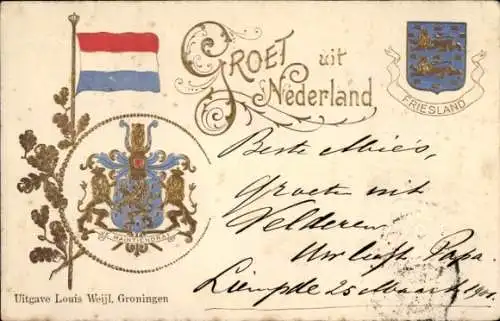 GROET uit
Nederland
FRIESLAND
Beste Mies,
Groeten uit
Velderen
Uw liefh. Papa.
Liempde 25 Maart 1901.
JE MAINTIENDRAI
Uitgave Louis Weijl, Groningen